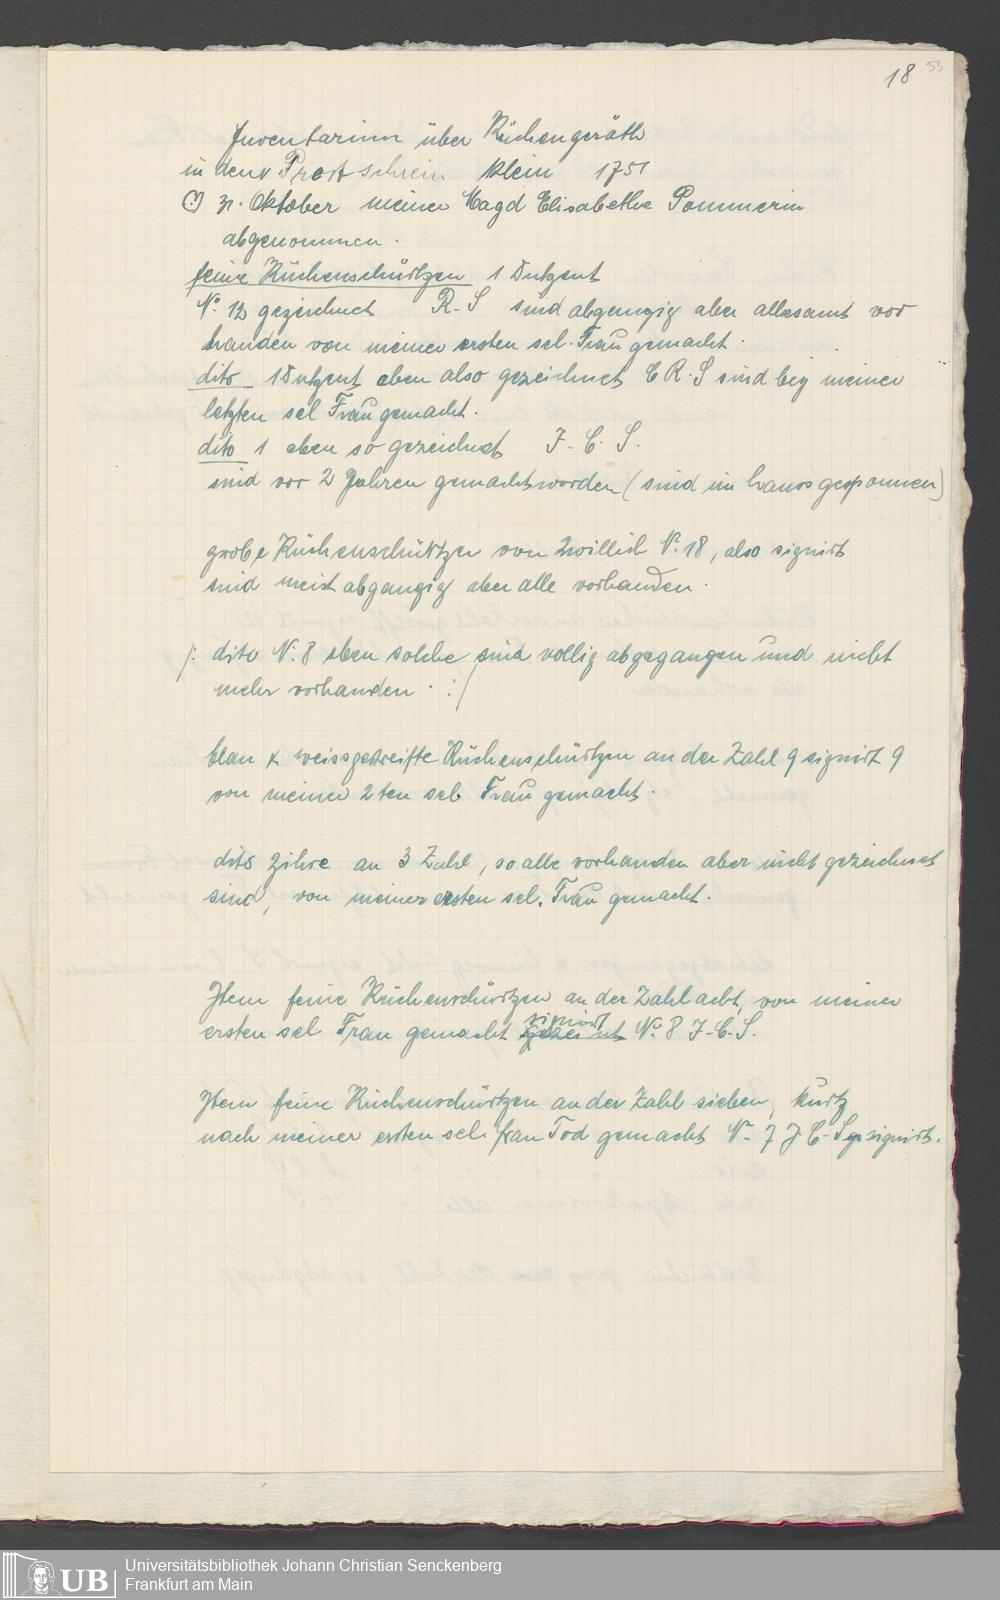 18 53
Inventarium über Küchengeräth
in dem Prost schrein klein 1751
(?) 31. Oktober meiner Magd Elisabethe Pommerin
abgenommen.
feine Küchenschürtzen 1 Dutzent
No. 12 gezeichnet R. S sind abgengig aber allesamt vor
handen von meiner ersten sel. Frau gemacht.
dito 1 Dutzent eben also gezeichnet C R. S sind bey meiner
letzten sel Frau gemacht.
dito 1 eben so gezeichnet J. C. S.
sind vor 2 Jahren gemacht worden (sind im hauss gesponnen)
grobe Küchenschürtzen von Zwillich N. 18, also signirt
sind meist abgangig aber alle vorhanden.
/: dito N. 8 eben solche sind vollig abgegangen und nicht
mehr vorhanden. :/
blau & weissgestreifte Küchenschürtzen an der Zahl 9 signirt 9
von meiner 2ten sel Frau gemacht.
dito an 3 Zahl, so alle vorhanden aber nicht gezeichnet
sind, von meiner ersten sel. Frau gemacht.
Item feine Küchenschürtzen an der Zahl acht, von meiner
signirt
ersten sel Frau gemacht No. 8 J-C-S.
Item feine Küchenschürtzen an der Zahl sieben, kurtz
nach meiner ersten sel. frau Tod gemacht N. 7 J C-S gesignirt.
UB
Universitätsbibliothek Johann Christian Senckenberg
Frankfurt am Main